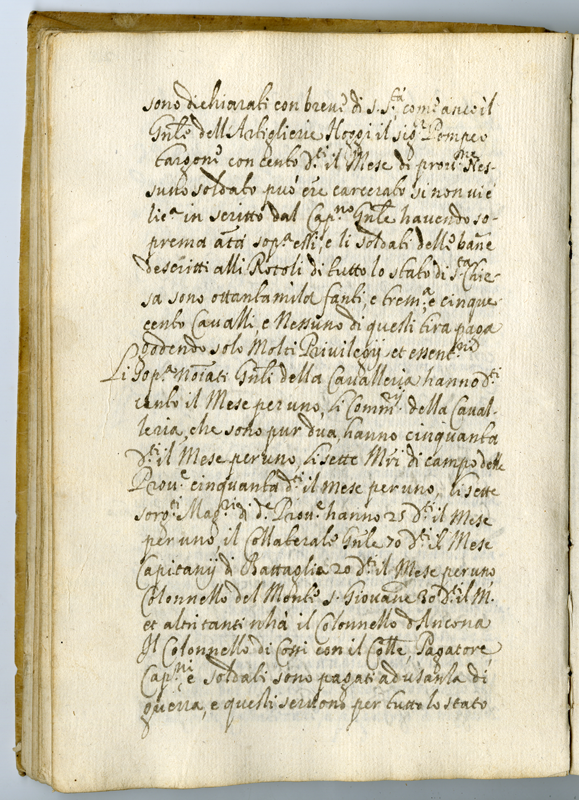 sono dichiarati con breve di S. Stà come anco il
Gnle dell Artiglierie Hoggi il sigre Pompeo
targone con cento dti il Mese di provne Nes-
suno soldato può ere carcerato si non vie
lica in scritto dal Capno Gnle havendo so-
prema attà sopa essi, e li soldati delle bane
descritti alli Rotoli di tutto lo stato di Sta Chie-
sa sono ottantamila fanti, e trema e cinque
cento Cavalli, e Nessuno di questi tira paga
godendo solo Molti Privilegy et essentni
Li sopa Noiati Gnli della Cavalleria hanno dti
cento il Mese per uno, li Commry della Caval-
leria, che sono pur dua, hanno cinquanta
dti il Mese per uno, li sette Mri di campo delle
Prove cinquanta dti il mese per uno, li sette
sorgti Magri di de Prove hanno 25 dti il Mese
per uno il Collaterale Gnle 70 dti il Mese
Capitany di Battaglia 20 dti il Mese per uno
Colonnello del Monte S. Giovane 30 dti il M.
et altri tanti n'hà il Colonnello d'Ancona
Il Colonnello di Corsi con il Colle Pagatore
Capni e soldati sono pagati ad usanza di
guerra, e questi servono per tutto lo stato